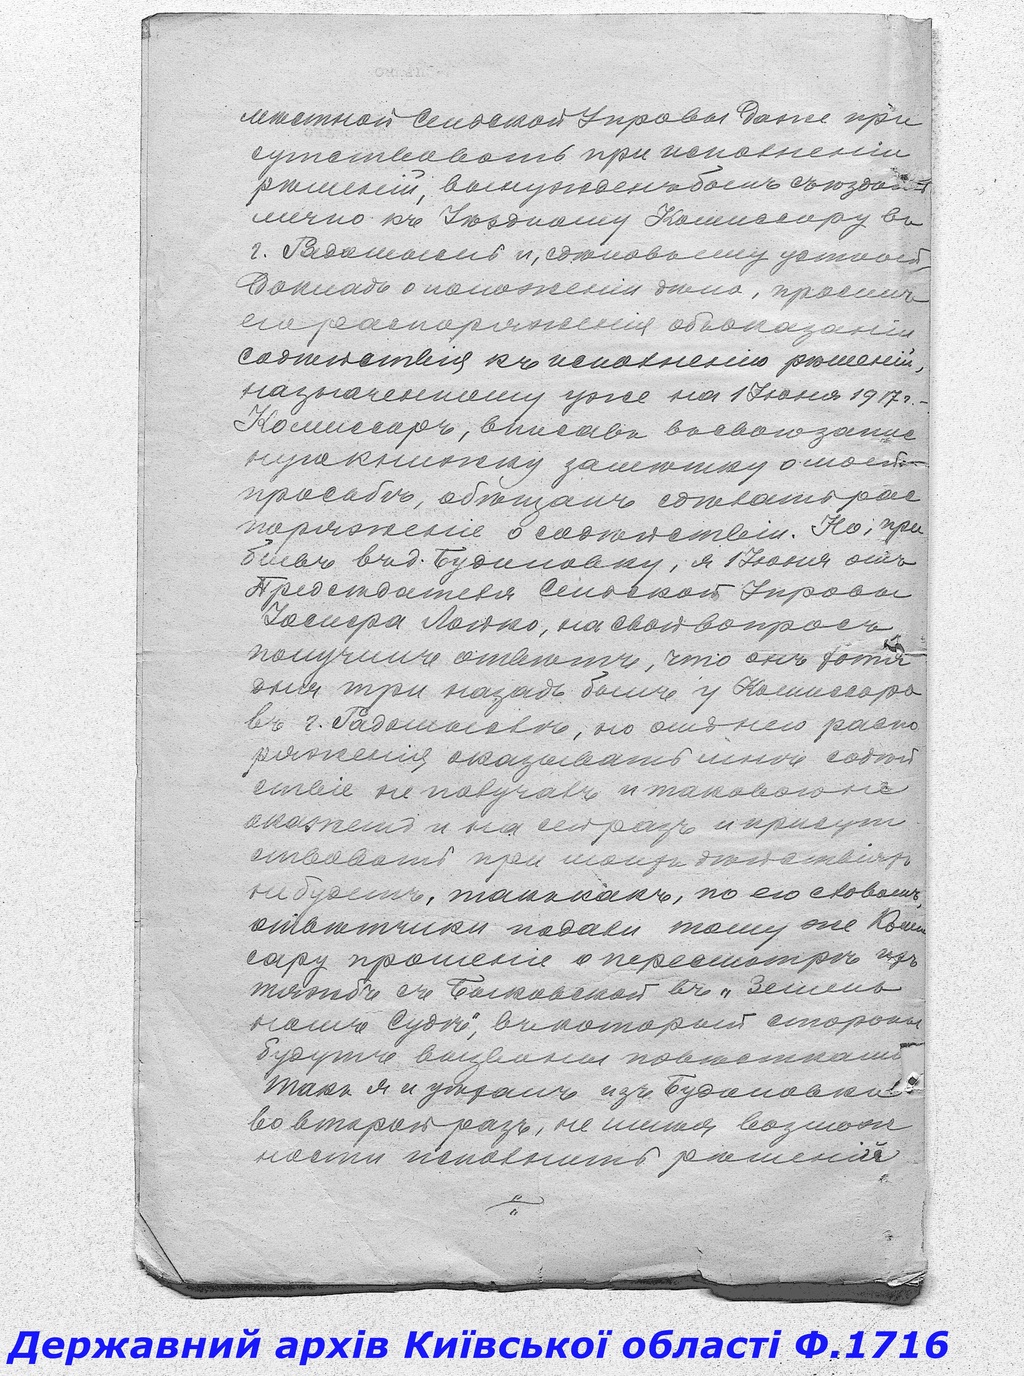 местной Сельской Управы даже при
сутствовать при исполненіи
рѣшеній, вынужденъ былъ съѣздить
лично къ Уѣздному Комиссару въ
г. Радомыслѣ и, сдѣлавъ ему устный
докладъ о положеніи дѣла, просилъ
его распоряженія объ оказаніи
содѣйствія къ исполненію рѣшеній,
назначенному уже на 1 Іюня 1917 г. –
Комиссаръ, вписавъ въ свою запис
ную книжку замѣтку о моей
просьбѣ, обѣщалъ сдѣлать рас
поряженіе о содѣйствіи. Но, при
бывъ въ д. Будиловку, я 1 Іюня отъ
Предсѣдателя Сельской Управы
Іосифа на свой вопросъ
получилъ отвѣтъ, что онъ хотя
дня три назадъ былъ у Комиссара
въ г. Радомыслѣ, но отъ него распо
ряженія оказывать мнѣ содѣй
ствіе не получалъ и таковаго не
окажетъ и на сей разъ и присут
ствовать при моихъ дѣйствіяхъ
не будетъ, такъ какъ, по его словамъ,
отвѣтчики подали тому же Комис
сару прошеніе о пересмотрѣ ихъ
тяжбѣ съ Быковской въ „Земель
номъ Судѣ", въ который стороны
будутъ вызваны повѣстками
Такъ я и уѣхалъ изъ Будиловки
во второй разъ, не имѣя возмож
ности исполнить рѣшеній
Державний архів Київської області Ф.1716